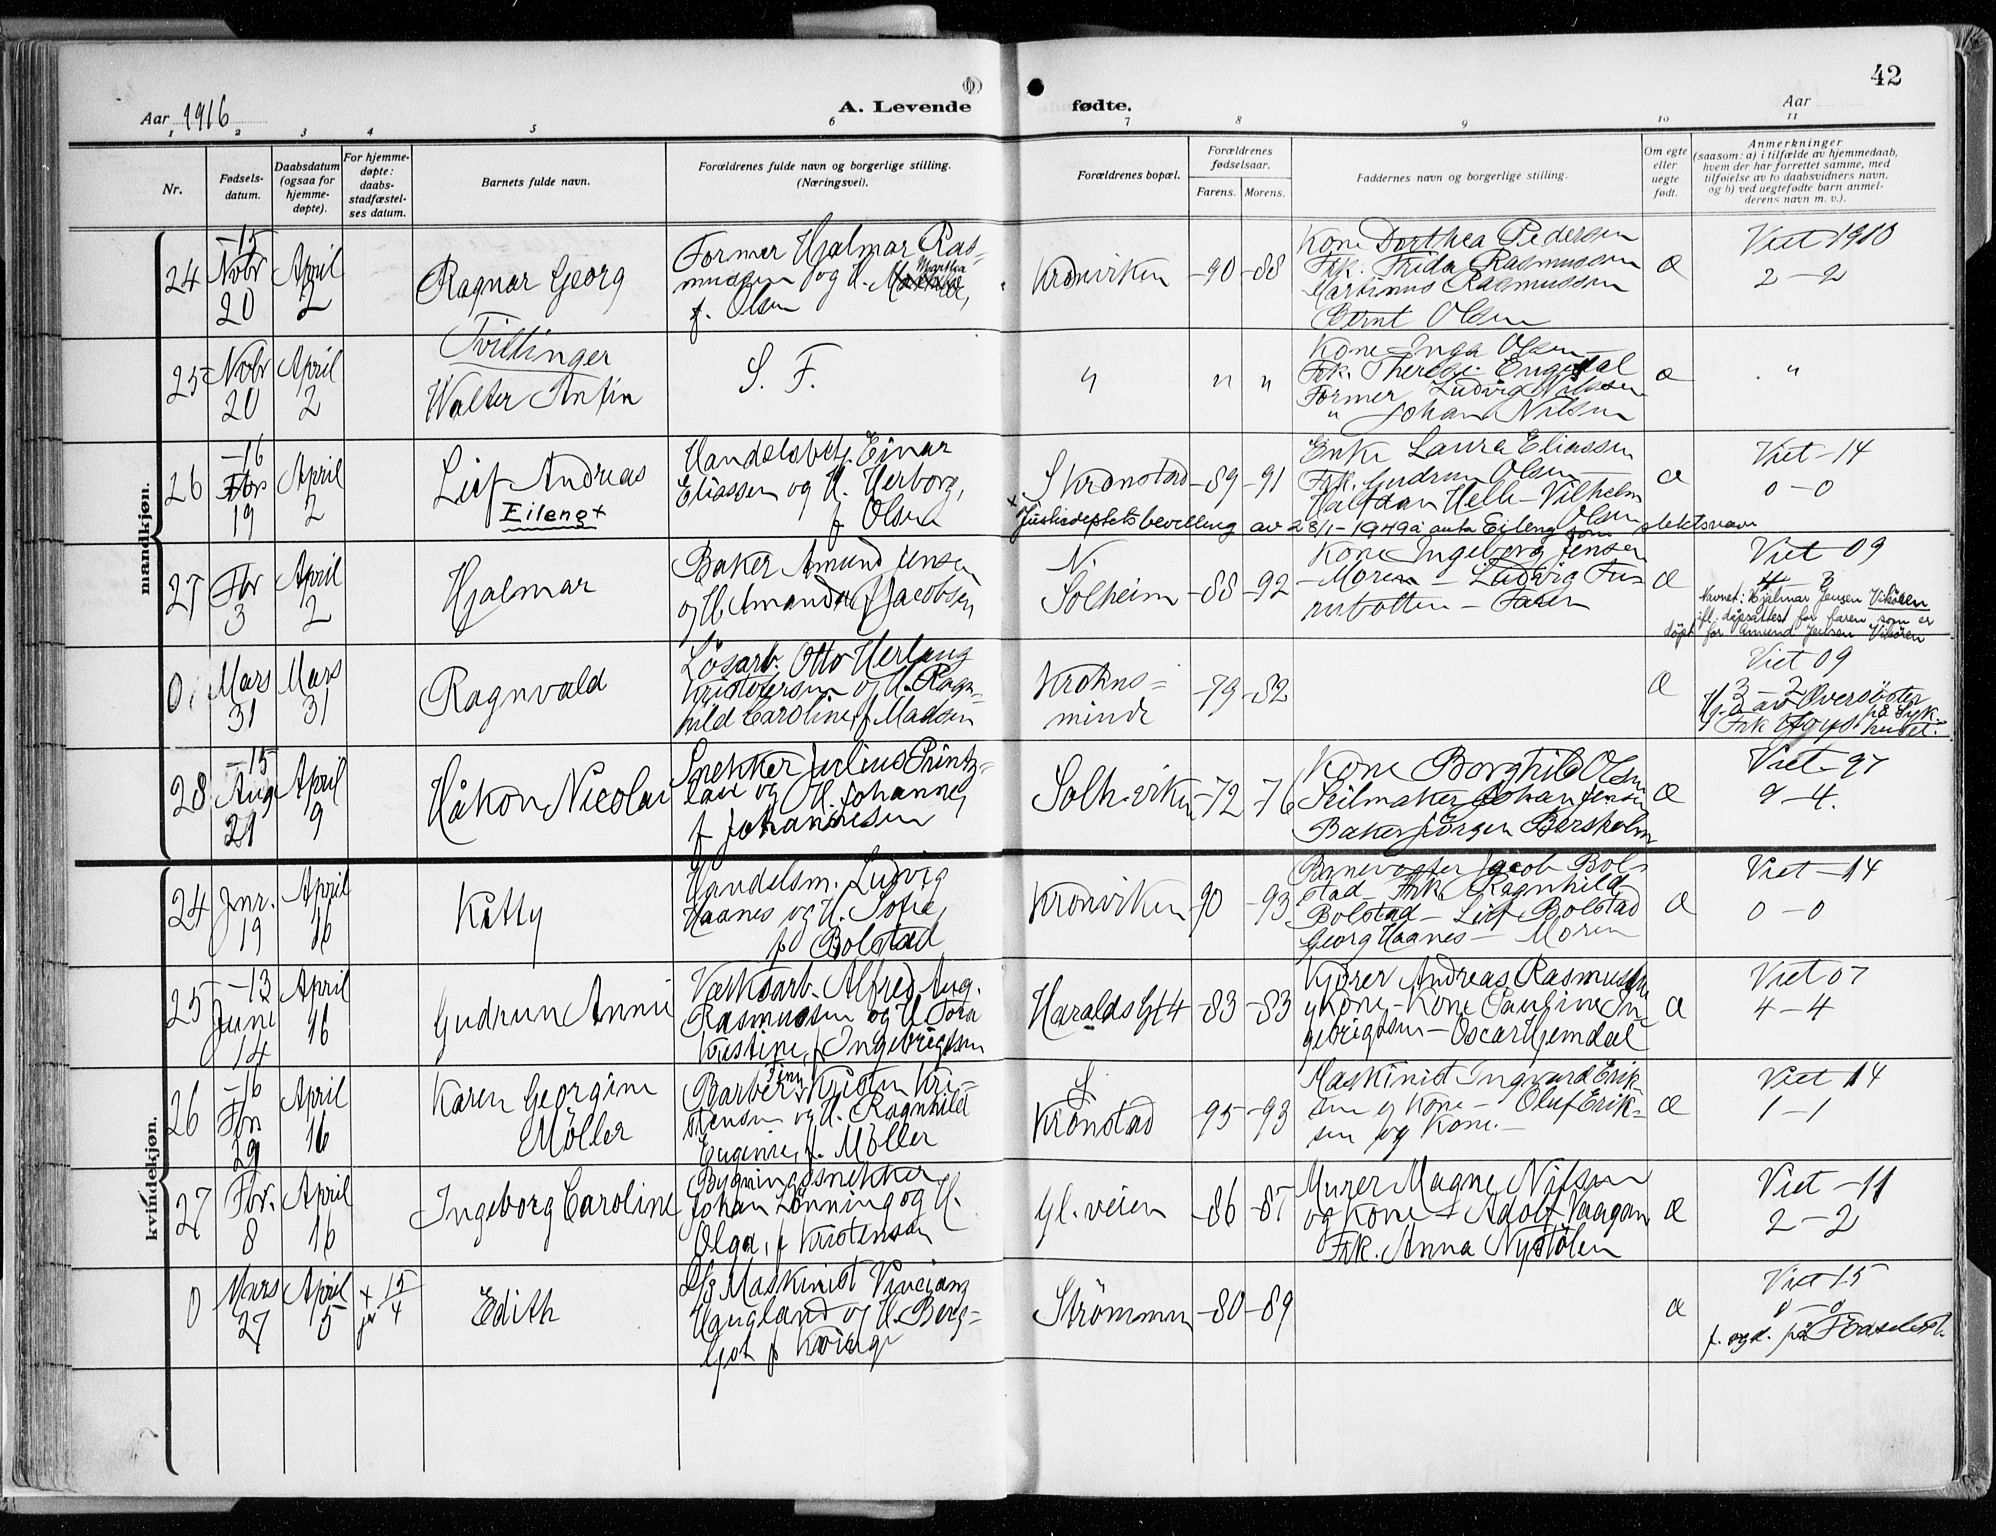 42
Aar 1916
A. Levende fødte.
Aar
1 2 3 4 5 6 7 8 9 10 11
Nr.
Fødsels-
datum.
Daabsdatum
(ogsaa for
hjemme-
døpte).
For hjemme-
døpte:
daabs-
stadfæstel-
ses datum.
Barnets fulde navn.
Forældrenes fulde navn og borgerlige stilling.
(Næringsvei).
Forældrenes bopæl.
Forældrenes
fødselsaar.
Farens. Morens.
Faddernes navn og borgerlige stilling.
Om egte
eller
uegte
født.
Anmerkninger
(saasom: a) i tilfælde av hjemmedaab,
hvem der har forrettet samme, med
tilføielse av to daabsvidners navn,
og b) ved uegtefødte barn anmel-
derens navn m. v.).
mandkjøn.
24
-15
Novbr
20
April
2
Ragnar Georg
Former Hjalmar Ras-
mussen og H. Martha
f. Olsen
Kronviken
-90 -88
Kone Dorthea Pedersen
Frk. Frida Rasmussen
Martinus Rasmussen
Bernt Olsen
æ
Viet 1910
2-2
25
Novbr
20
April
2
Tvillinger
Walter Anfin
S. F.
"
" "
Kone Inga Olsen
Frk. Therese Engedal
Former Ludvig Nilsen
" Johan Nilsen
æ
"
26
-16
Fbr
19
April
2
Leif Andreas
Eileng+
Handelsbetj. Einar
Eliassen og H. Herborg,
f Olsen
S Kronstad
-89 -91
Enke Laura Eliassen
Frk. Gudrun Olsen
Halfdan Helle - Vilhelm
Olsen
æ
Viet -14
0-0
x Justisdeptets bevilling av 28/1-1949 å anta Eileng som slektsnavn
27
Fbr
3
April
2
Hjalmar
Baker Amund Jensen
og H. Amanda f Jacobsen
N.
Solheim
-88 -92
Kone Ingeborg Jensen
- Moren - Ludvig Fu-
rubotten - Faren
æ
Viet 09
4 3
Navnet: Hjalmar Jensen Vikøren
ifl. dåpsattest for faren, som er
døpt for Amund Jensen Vikøren
0
Mars
31
Mars
31
Ragnvald
Løsarb. Otto Herlaug
Kristofersen og H. Ragn-
hild Caroline f Madsen
Krohns-
minde
-79 -82
æ
Viet 09
3-2
Hj.d av Oversøster
Frk på Syk-
huset.
28
-15
Aug
21
April
9
Håkon Nicolai
Snekker Julius Printz-
lau og H. Johanne,
f Johannesen
Solh.viken
-72 -76
Kone Borghild Olsen
Seilmaker Johan Jensen
Baker Jörgen Bersholm
æ
Viet-97
9-4.
kvindekjøn.
24
Jnr.
19
April
16
Kitty
Handelsm. Ludvig
Haanes og H. Sofie,
f Bolstad
Kronviken
90 -93
Jacob Bol-
stad Frk. Ragnhild
Bolstad - Leif Bolstad
Georg Haanes - Moren
æ
Viet -14
0-0
25
-13
June
14
April
16
Gudrun Annie
Værksarb. Alfred Aug.
Rasmussen og H Tora
Kristine, f Ingebrigtsen
Haralds Gt 4
-83 -83
Kjører Andreas Rasmussen
og Kone - Kone Pauline In-
gebrigtsen - Oscar Hjemdal
æ
Viet 07
4-4
26
-16
Fbr
29
April
16
Karen Georgine
Møller
Barber Kristen Kri-
stensen og H. Ragnhild
Eugenie, f. Møller
S.
Kronstad
-95 -93
Maskinist Ingvard Erik-
sen og Kone - Oluf Erik-
sen og Kone.
æ
Viet 14
1-1
27
Fbr.
8
April
16
Ingeborg Caroline
Bygningssnekker
Johan Lönning og H.
Olga, f Kristensen
Gl. veien
-86 -87
Murer Magne Nilsen
og Kone - Adolf Vaagan
Frk. Anna Nystölen
æ
Viet -11
2-2
0
Mars
27
April
5
+ 15/4
Edith
D/S Maskinist
Haugland og H. Berg-
ljot f
Strömmen
-80 -89
æ
Viet 15
0-0
f. og d. på Fødselsst.